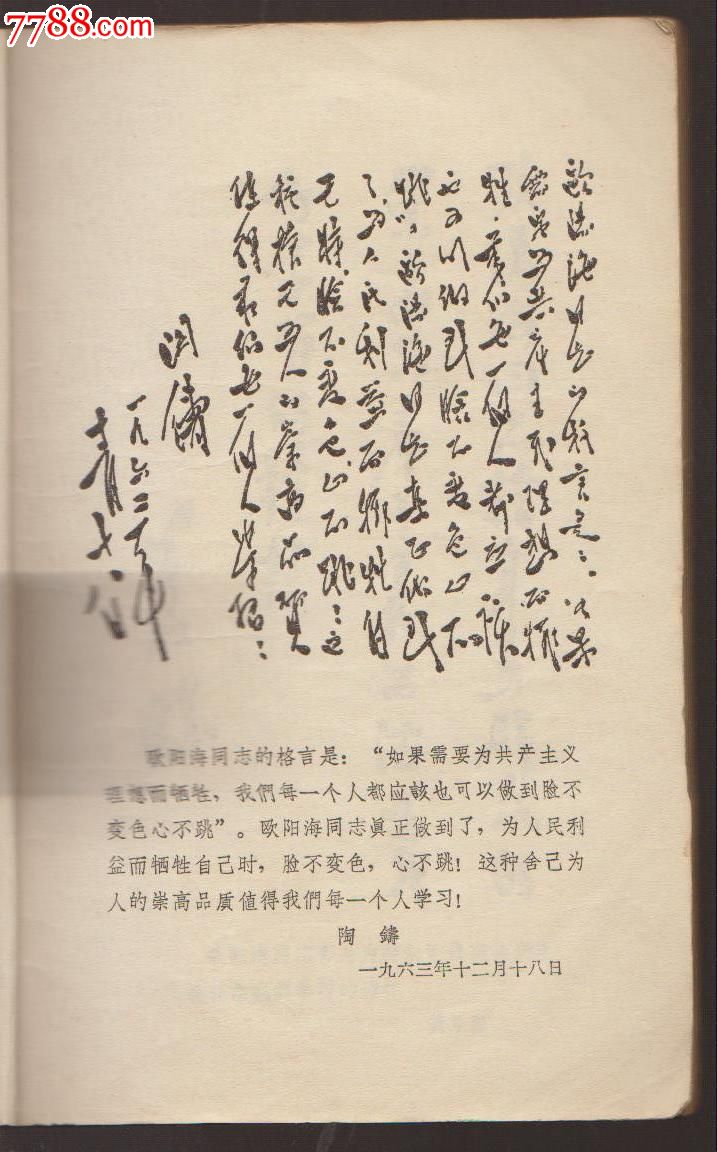 7788.com
欧阳海同志的格言是：“如果
需要为共产主义理想而牺
牲，我们每一个人都应该
也可以做到脸不变色心不
跳”，欧阳海同志真正做到
了，为人民利益而牺牲自
己时，脸不变色，心不跳！这
种舍己为人的崇高品质
值得我们每一个人学习！
陶鑄
一九六三年
十二月十八日
欧阳海同志的格言是：“如果需要为共产主义
理想而牺牲，我們每一个人都应該也可以做到脸不
变色心不跳”。欧阳海同志眞正做到了，为人民利
益而牺牲自己时，脸不变色，心不跳！这种舍己为
人的崇高品质值得我們每一个人学习！
陶 鑄
一九六三年十二月十八日